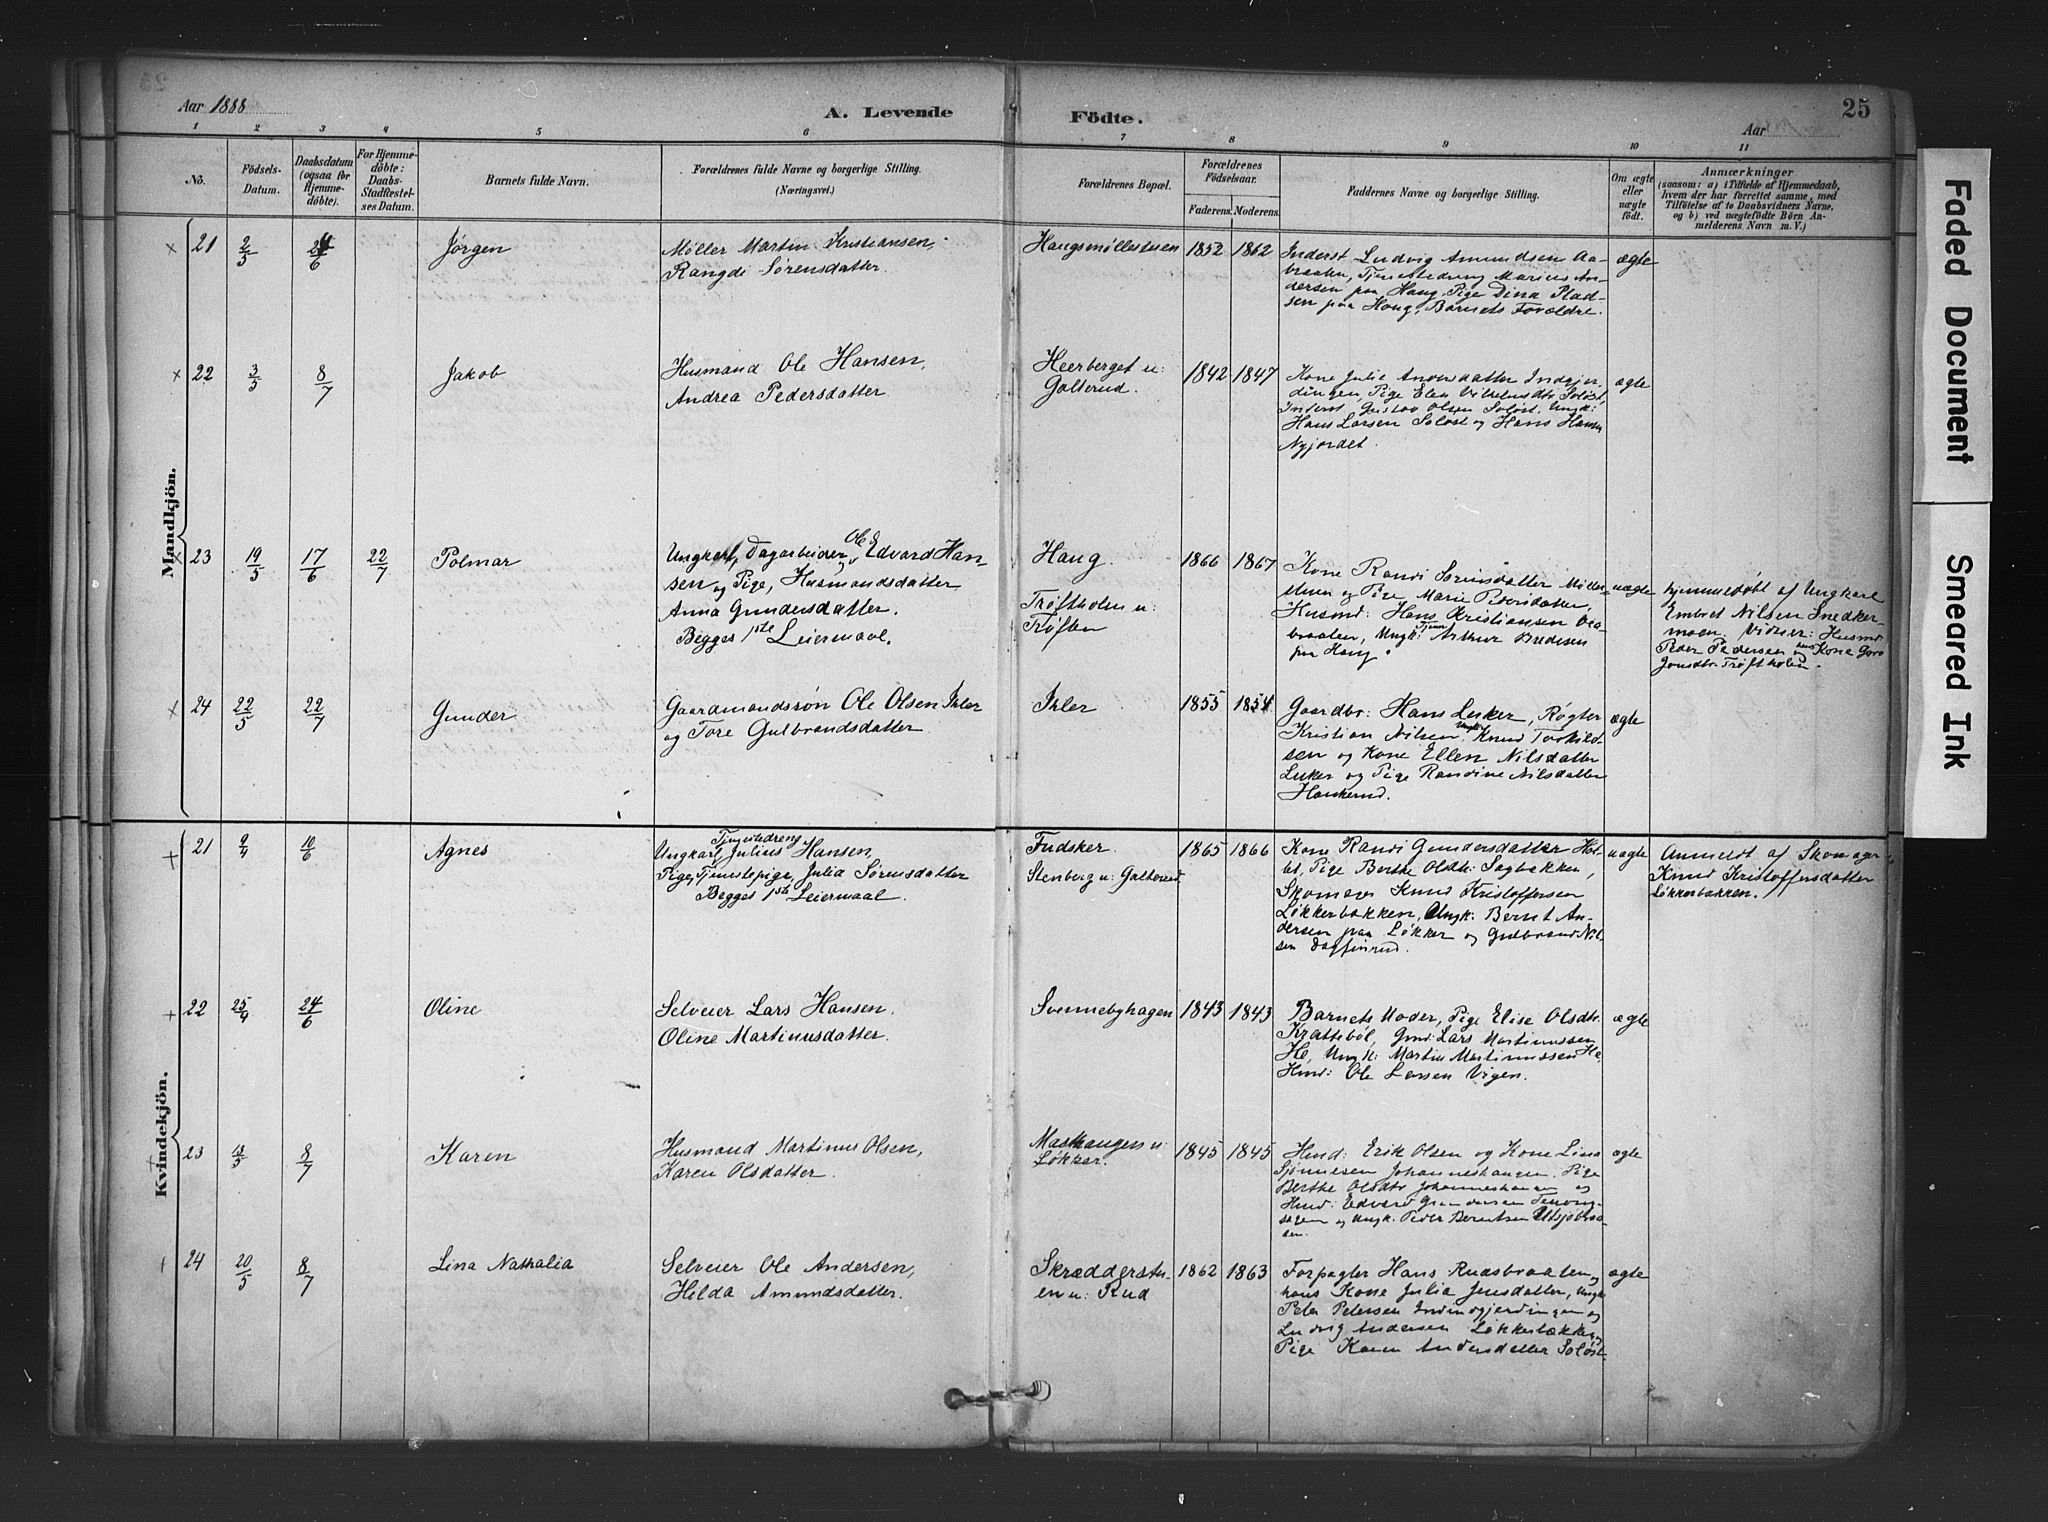 Aar 1888
A. Levende
Födte.
Aar
25
1 2 3 4 5 6 7 8 9 10 11
No.
Födsels-
Datum.
Daabsdatum
(ogsaa for
Hjemme-
döbte).
For Hjemme-
döbte:
Daabs-
Stadfæstel-
ses Datum.
Barnets fulde Navn.
Forældrenes fulde Navne og borgerlige Stilling.
(Næringsvei.)
Forældrenes Bopæl.
Forældrenes
Födselsaar.
Faderens. Moderens.
Faddernes Navne og borgerlige Stilling.
Om ægte
eller
uægte
födt.
Anmærkninger
(saasom: a) i Tilfælde af Hjemmedaab,
hvem der har forrettet samme, med
Tilföielse af to Daabsvidners Navne,
og b) ved uægtefödte Börn An-
melderens Navn m. V.)
Mandkjön.
21 2/5 24/6 Jørgen
Møller Martin Kristiansen,
Rangdi Sørensdatter.
Haugsmøllestuen 1852 1862
Inderst Ludvig Amundsen Aa-
braaten, Tjenestedreng Marius An-
dersen paa Haug, Pige Dina Plad-
sen paa Haug, Barnets Forældre.
ægte
22 3/5 8/7 Jakob
Husmand Ole Hansen,
Andrea Pedersdatter
Heerberget u:
Golterud. 1842 1847
Kone Julie Andersdatter Indgjer-
dingen Pige Elen Vilhelmsdtr Soløst,
Inderst Gustav Olsen Soløst, Ungk:
Hans Larsen Soløst og Hans Hansen
Nyjordet.
ægte
23 19/5 17/6 22/7 Polmar
Ungkarl, Dagarbeider Ole Edvard Han-
sen og Pige, Husmandsdatter
Anna Gundersdatter.
Begges 1ste Leiermaal.
Haug.
Trøftholen u:
Trøften
1866 1867
Kone Randi Sørensdatter Mølle-
stuen og Pige Marie Pedersdatter,
Husmd: Hans Kristiansen Aa-
braaten, Ungk: Tjener Arthur Bredesen
paa Haug.
uægte
hjemmedøbt af Ungkarl
Embret Nilsen Snedker-
moen. Vidner: Husmd
Peder Pedersen og hans Kone Goro
Jonsdtr Trøftholen.
24 22/5 22/7 Gunder
Gaardmandssøn Ole Olsen Ihler
og Tore Gulbrandsdatter.
Ihler 1855 1854
Gaardbr: Hans Leker, Røgter
Kristian Nilsen, Ungk: Knud Torkild-
sen og Kone Ellen Nilsdatter
Leker og Pige Randine Nilsdatter
Haukerud.
ægte
Kvindekjön.
21 9/4 10/6 Agnes
Tjenestedreng
Ungkarl, Julius Hansen,
Pige, Tjenestepige, Julia Sørensdatter
Begges 1ste Leiermaal.
Fudsker.
Stenberg u: Galterud.
1865 1866
Kone Randi Gundersdatter Hol-
tet, Pige Berthe Olsdtr: Sagbakken,
Skomager Knud Kristoffersen
Løkkerbakken, Ungk: Bernt An-
dersen paa Løkker og Gulbrand Nil-
sen Dagfinrud.
uægte
Anmeldt af Skomager
Knud Kristoffersdatter
Løkkerbakken.
22 25/4 24/6 Oline
Selveier Lars Hansen.
Oline Martinusdatter.
Svennebyhagen 1843 1843
Barnets Moder, Pige Elise Olsdtr.
Krattebøl, Gmd: Lars Martinussen
He, Ungk: Martin Martinussen He,
Hmd: Ole Larsen Vigen.
ægte
23 13/5 8/7 Karen
Husmand Martinus Olsen,
Karen Olsdatter.
Maskaugen u:
Løkker. 1845 1845
Hmd: Erik Olsen og Kone Lina
Johanneshaugen, Pige
Berthe Olsdtr Johanneshaugen og
Hmd: Edvard Gundersen
og Ungk. Peder Berntsen
sen.
ægte
24 20/5 8/7 Lina Nathalia
Selveier Ole Andersen,
Helda Amundsdatter.
Skrædderstu-
en u: Rud 1862 1863
Forpagter Hans Rudsbraaten og
hans Kone Julia Jensdatter, Ungk
Peter Petersen Indindgjerdingen og
Ludvig Andersen Løkkerbakken,
Pige Karen Andersdatter Soløst.
ægte
Faded Document
Smeared Ink